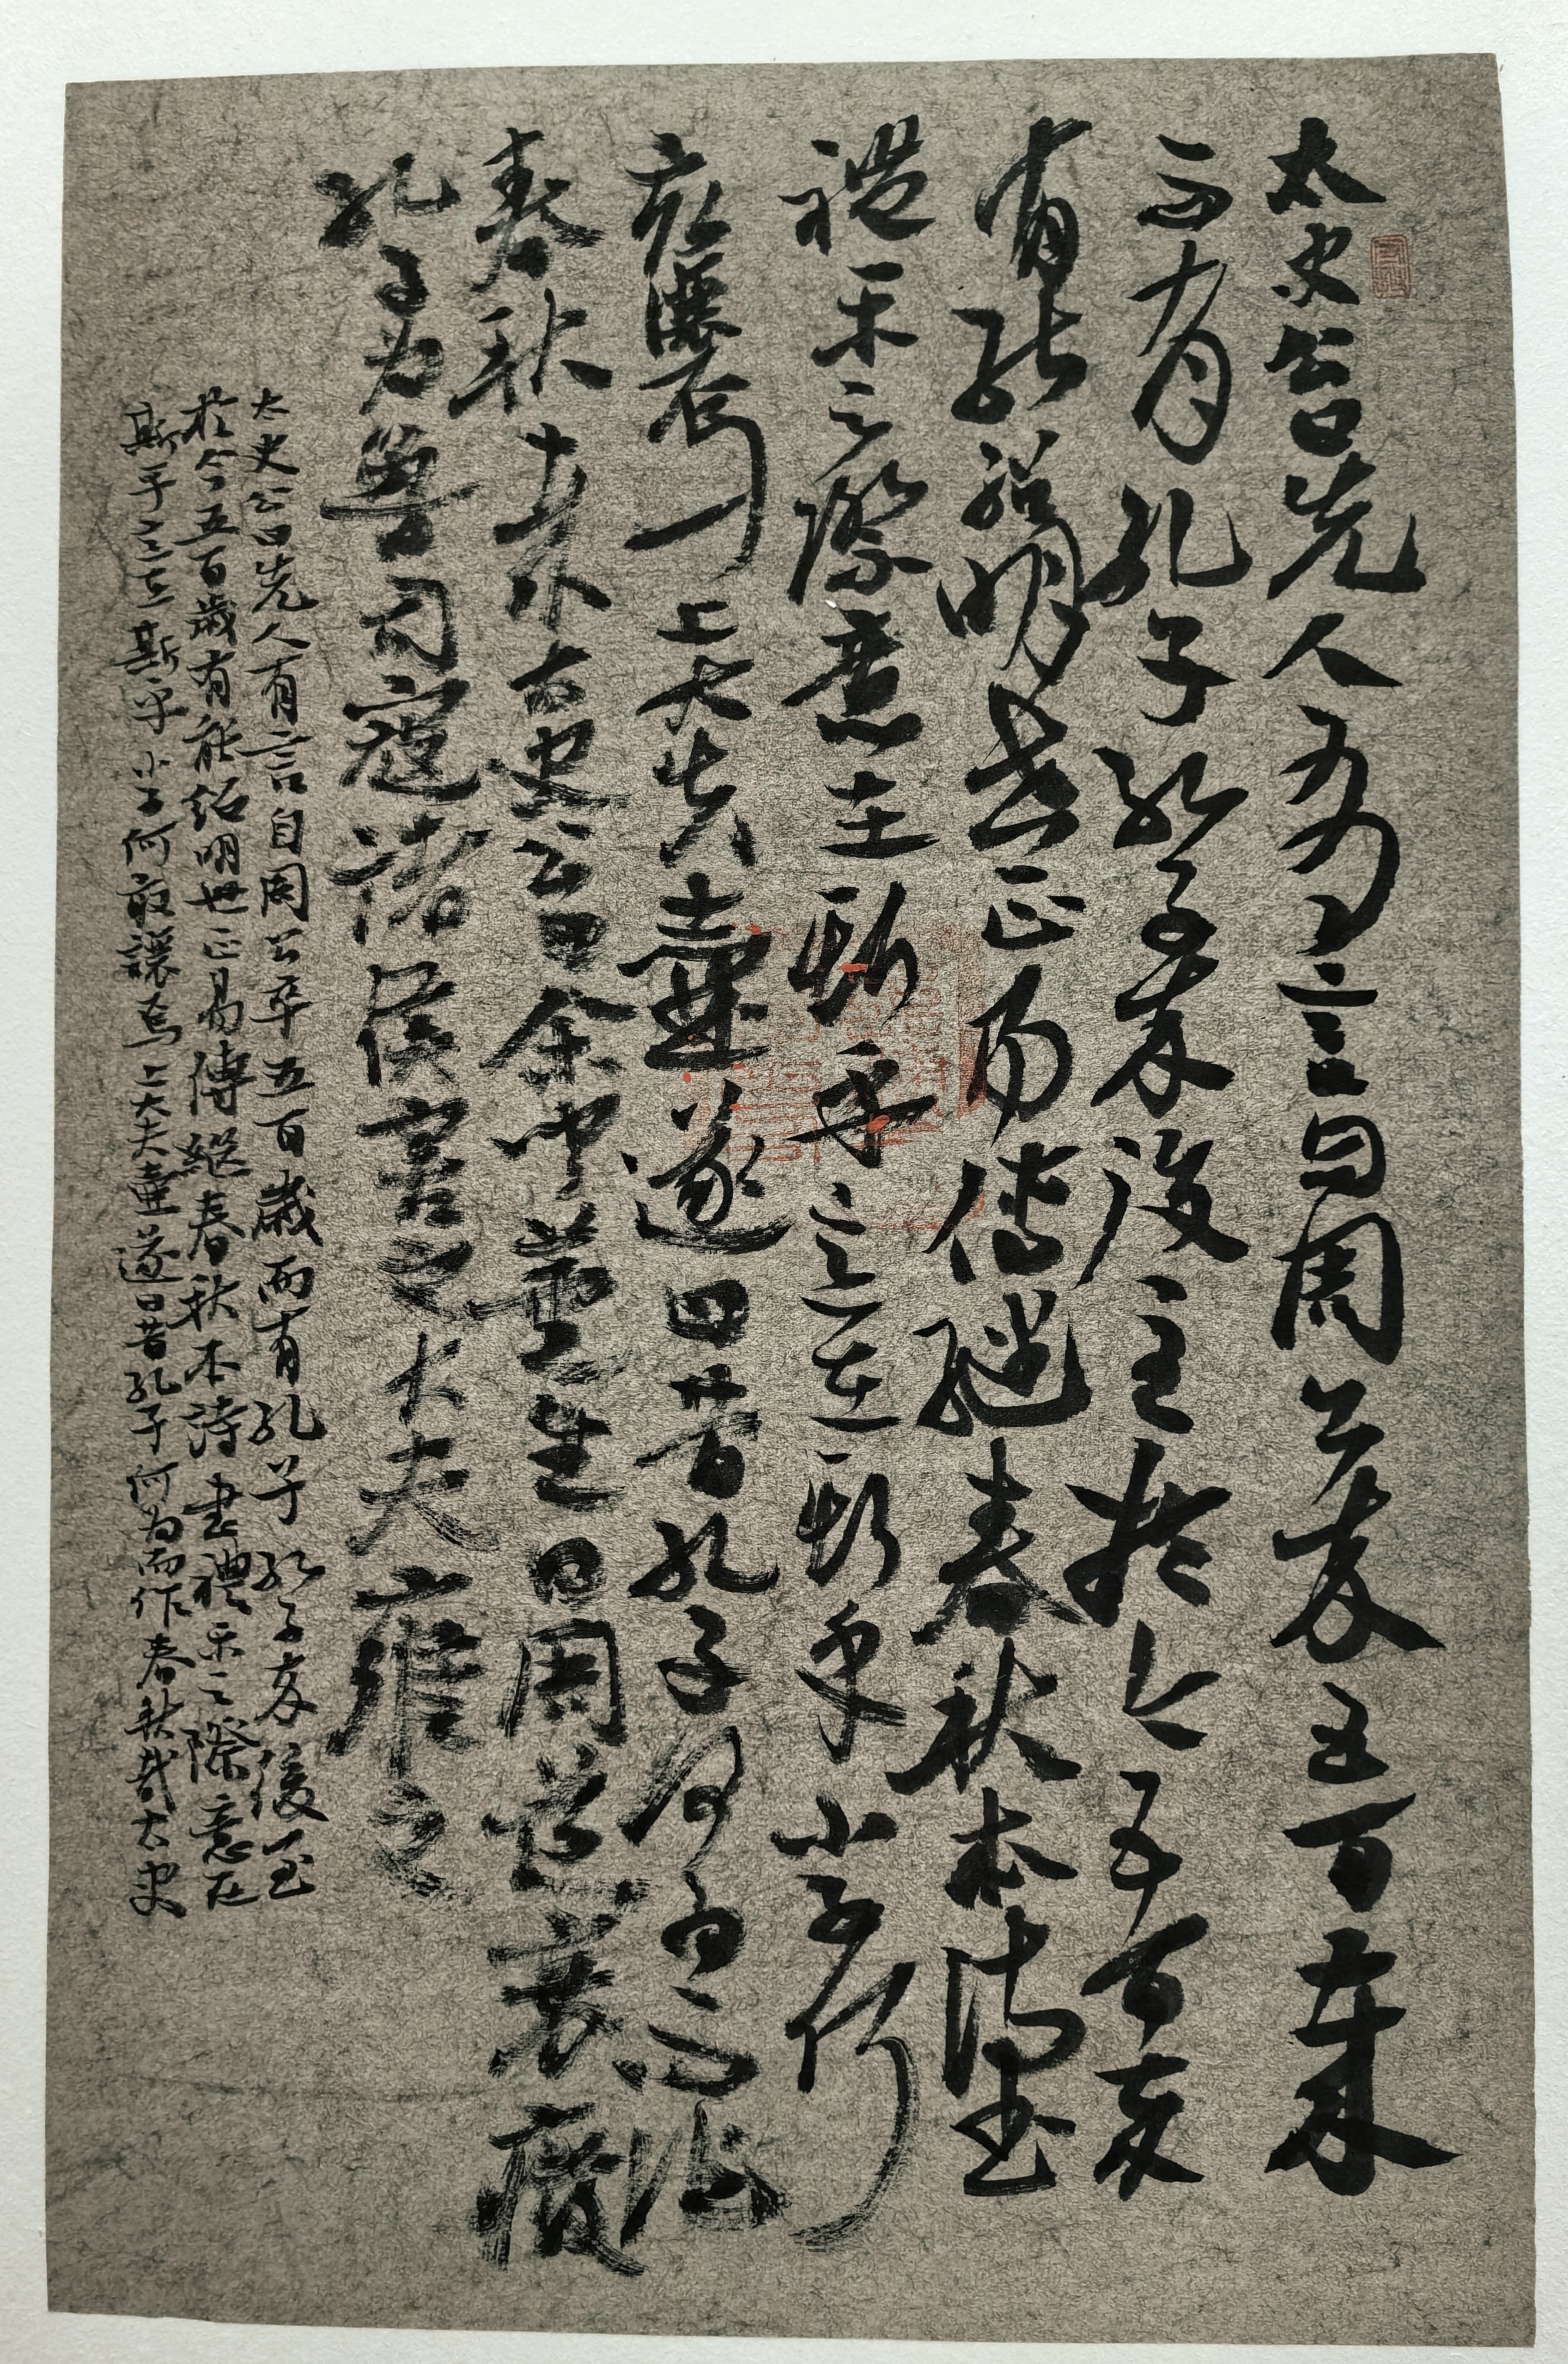 太史公曰先人有言自周公卒五百歲
而有孔子孔子卒後至於今五百歲
有能紹明世正易傳繼春秋本詩書
禮樂之際意在斯乎意在斯乎小子何
敢讓焉上大夫壺遂曰昔孔子何為而作
春秋哉太史公曰余聞董生曰周道衰廢
孔子為魯司寇諸侯害之大夫壅之
太史公曰先人有言自周公卒五百歲而有孔子孔子卒後至
於今五百歲有能紹明世正易傳繼春秋本詩書禮樂之際意在
斯乎意在斯乎小子何敢讓焉上大夫壺遂曰昔孔子何為而作春秋哉太史